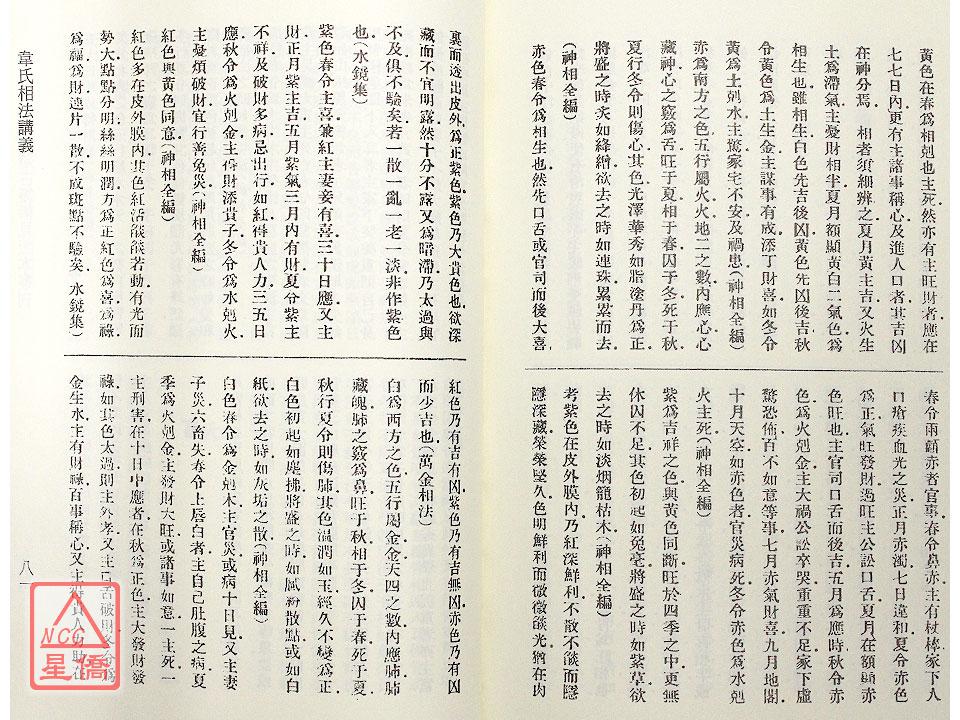 黃色在春爲相剋也主死然亦有主旺財者應在
七七日內更有主諸事稱心及進人口者其吉凶
在神分焉 相者須細辨之夏月黃主吉又火生
土爲滯氣主憂財相半夏月額顯黃白二氣色爲
相生也雖相生白色先吉後凶黃色先凶後吉秋
令黃色爲土生金主謀事有成添丁財喜如冬令
黃爲土剋水主驚家宅不安及禍患(神相全編)
赤爲南方之色五行屬火火地二之數內應心心
藏神心之竅爲舌旺于夏相于春囚于冬死于秋
夏行冬令則傷心其色光澤華秀如脂塗丹爲正
將盛之時炙如絳繒欲去之時如連珠累累而去
(神相全編)
赤色春令爲相生也然先口舌或官司而後大喜
春令兩顴赤者官事春令鼻赤主有杖棒家下人
口瘡疾血光之災正月赤濁七日違和夏令赤色
爲正氣旺發財過旺主公訟口舌夏月在額顯赤
色旺也主官司口舌而後吉五月爲應時秋令赤
色爲火剋金主大禍公訟卒哭重重不足家下虛
驚恐怖百不如意等事七月赤氣財喜九月地閣
十月天空如赤色者官災病死冬令赤色爲水剋
火主死(神相全編)
紫爲吉祥之色與黃色同斷旺於四季之中更無
休囚不足其色初起如兔毫將盛之時如紫草欲
去之時如淡烟籠枯木(神相全編)
考紫色在皮外膜內乃紅深鮮利不散不燄而隱
隱深藏榮榮堅久色明鮮利而微微燄光猶在肉
裏而透出皮外爲正紫色紫色乃大貴色也欲深
藏而不宜明露然十分不露又爲暗滯乃太過與
不及俱不驗矣若一散一亂一老一淡非作紫色
也(水鏡集)
紫色春令主喜兼紅主妻妾有喜三十日應又主
財正月紫主吉五月紫氣三月內有財夏令紫主
不祥及破財多病忌出行如紅得貴人力三五日
應秋令爲火剋金主得財添貴子冬令爲水剋火
主憂煩破財宜行善免災(神相全編)
紅色與黃色同意(神相全編)
紅色多在皮外膜內其色紅活燄燄若動有光而
勢大點點分明絲絲明潤方爲正紅色爲喜爲祿
爲福爲財連片一散不成斑點不驗矣 水鏡集)
紅色乃有吉有凶紫色乃有吉無凶赤色乃有凶
而少吉也(萬金相法)
白爲西方之色五行屬金金天四之數內應肺肺
藏魄肺之竅爲鼻旺于秋相于冬囚于春死于夏
秋行夏令則傷肺其色溫潤如玉經久不變爲正
白色初起如塵拂將盛之時如膩粉散點或如白
紙欲去之時如灰垢之散(神相全編)
白色春令爲金剋木主官災或病十日見又主妻
子災六畜失春令上唇白者主自己肚腹之病夏
季爲火剋金主發財大旺或諸事如意一主死一
主刑害在十日中應者在秋爲正色主大發財發
祿如其色太過則主外孝又主口舌破財冬令爲
金生水主有財祿百事稱心又主得貴人力助在
韋氏相法講義
八一
NCC
星僑